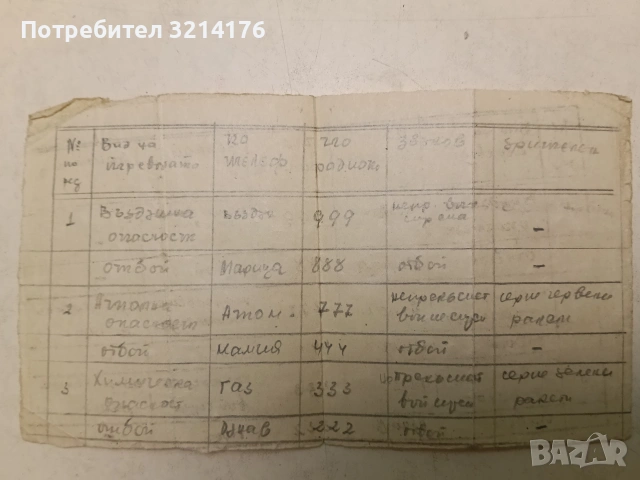 Потребител 3214176
№ по ред
Вид на тревогата
по телеф
по радиот
звуков
зрителен
1
Въздушна опасност
въздух
999
непр. вой на сирена
-
отбой
Марица
888
отбой
-
2
Атомна опасност
Атом
777
непрекъснат вой
серия червени ракети
отбой
444
отбой
-
3
Химическа опасност
газ
333
прекъснат вой
серия зелени ракети
отбой
222
отбой
-
BAZAR
bg